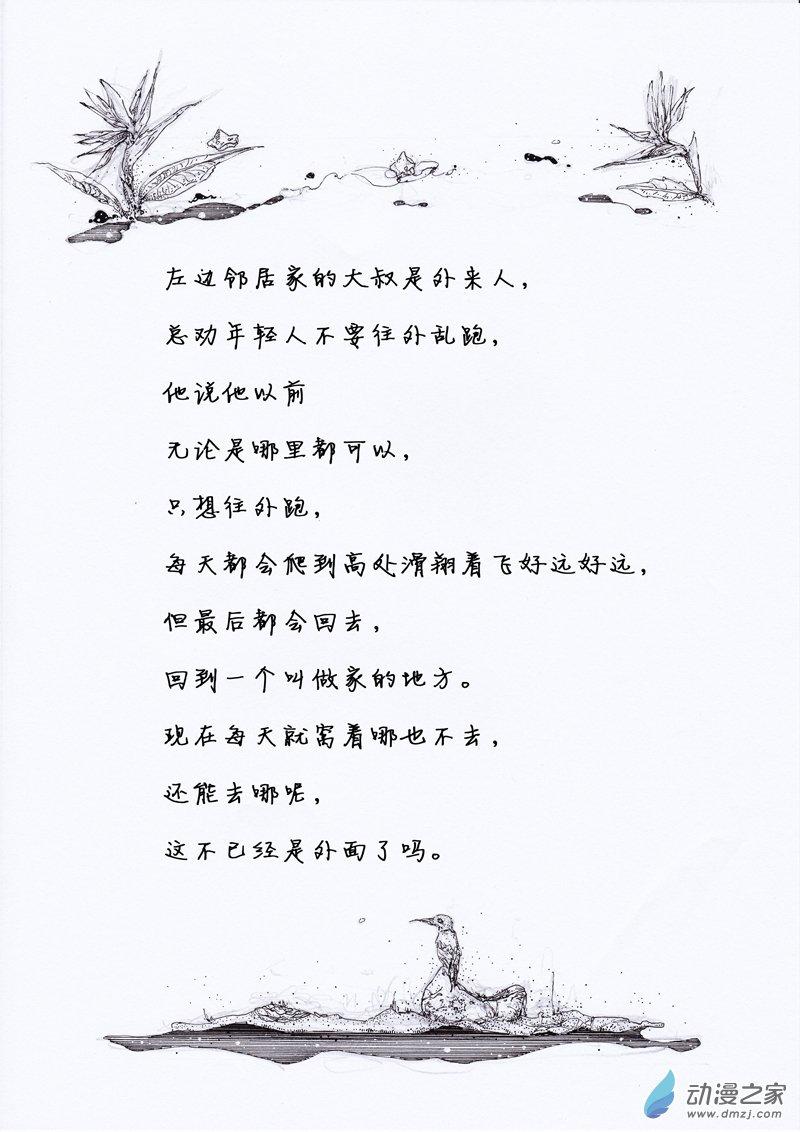 左边邻居家的大叔是外来人，
总劝年轻人不要往外乱跑，
他说他以前
无论是哪里都可以，
只想往外跑，
每天都会爬到高处滑翔着飞好远好远，
但最后都会回去，
回到一个叫做家的地方。
现在每天就窝着哪也不去，
还能去哪呢，
这不已经是外面了吗。
动漫之家
www.dmzj.com